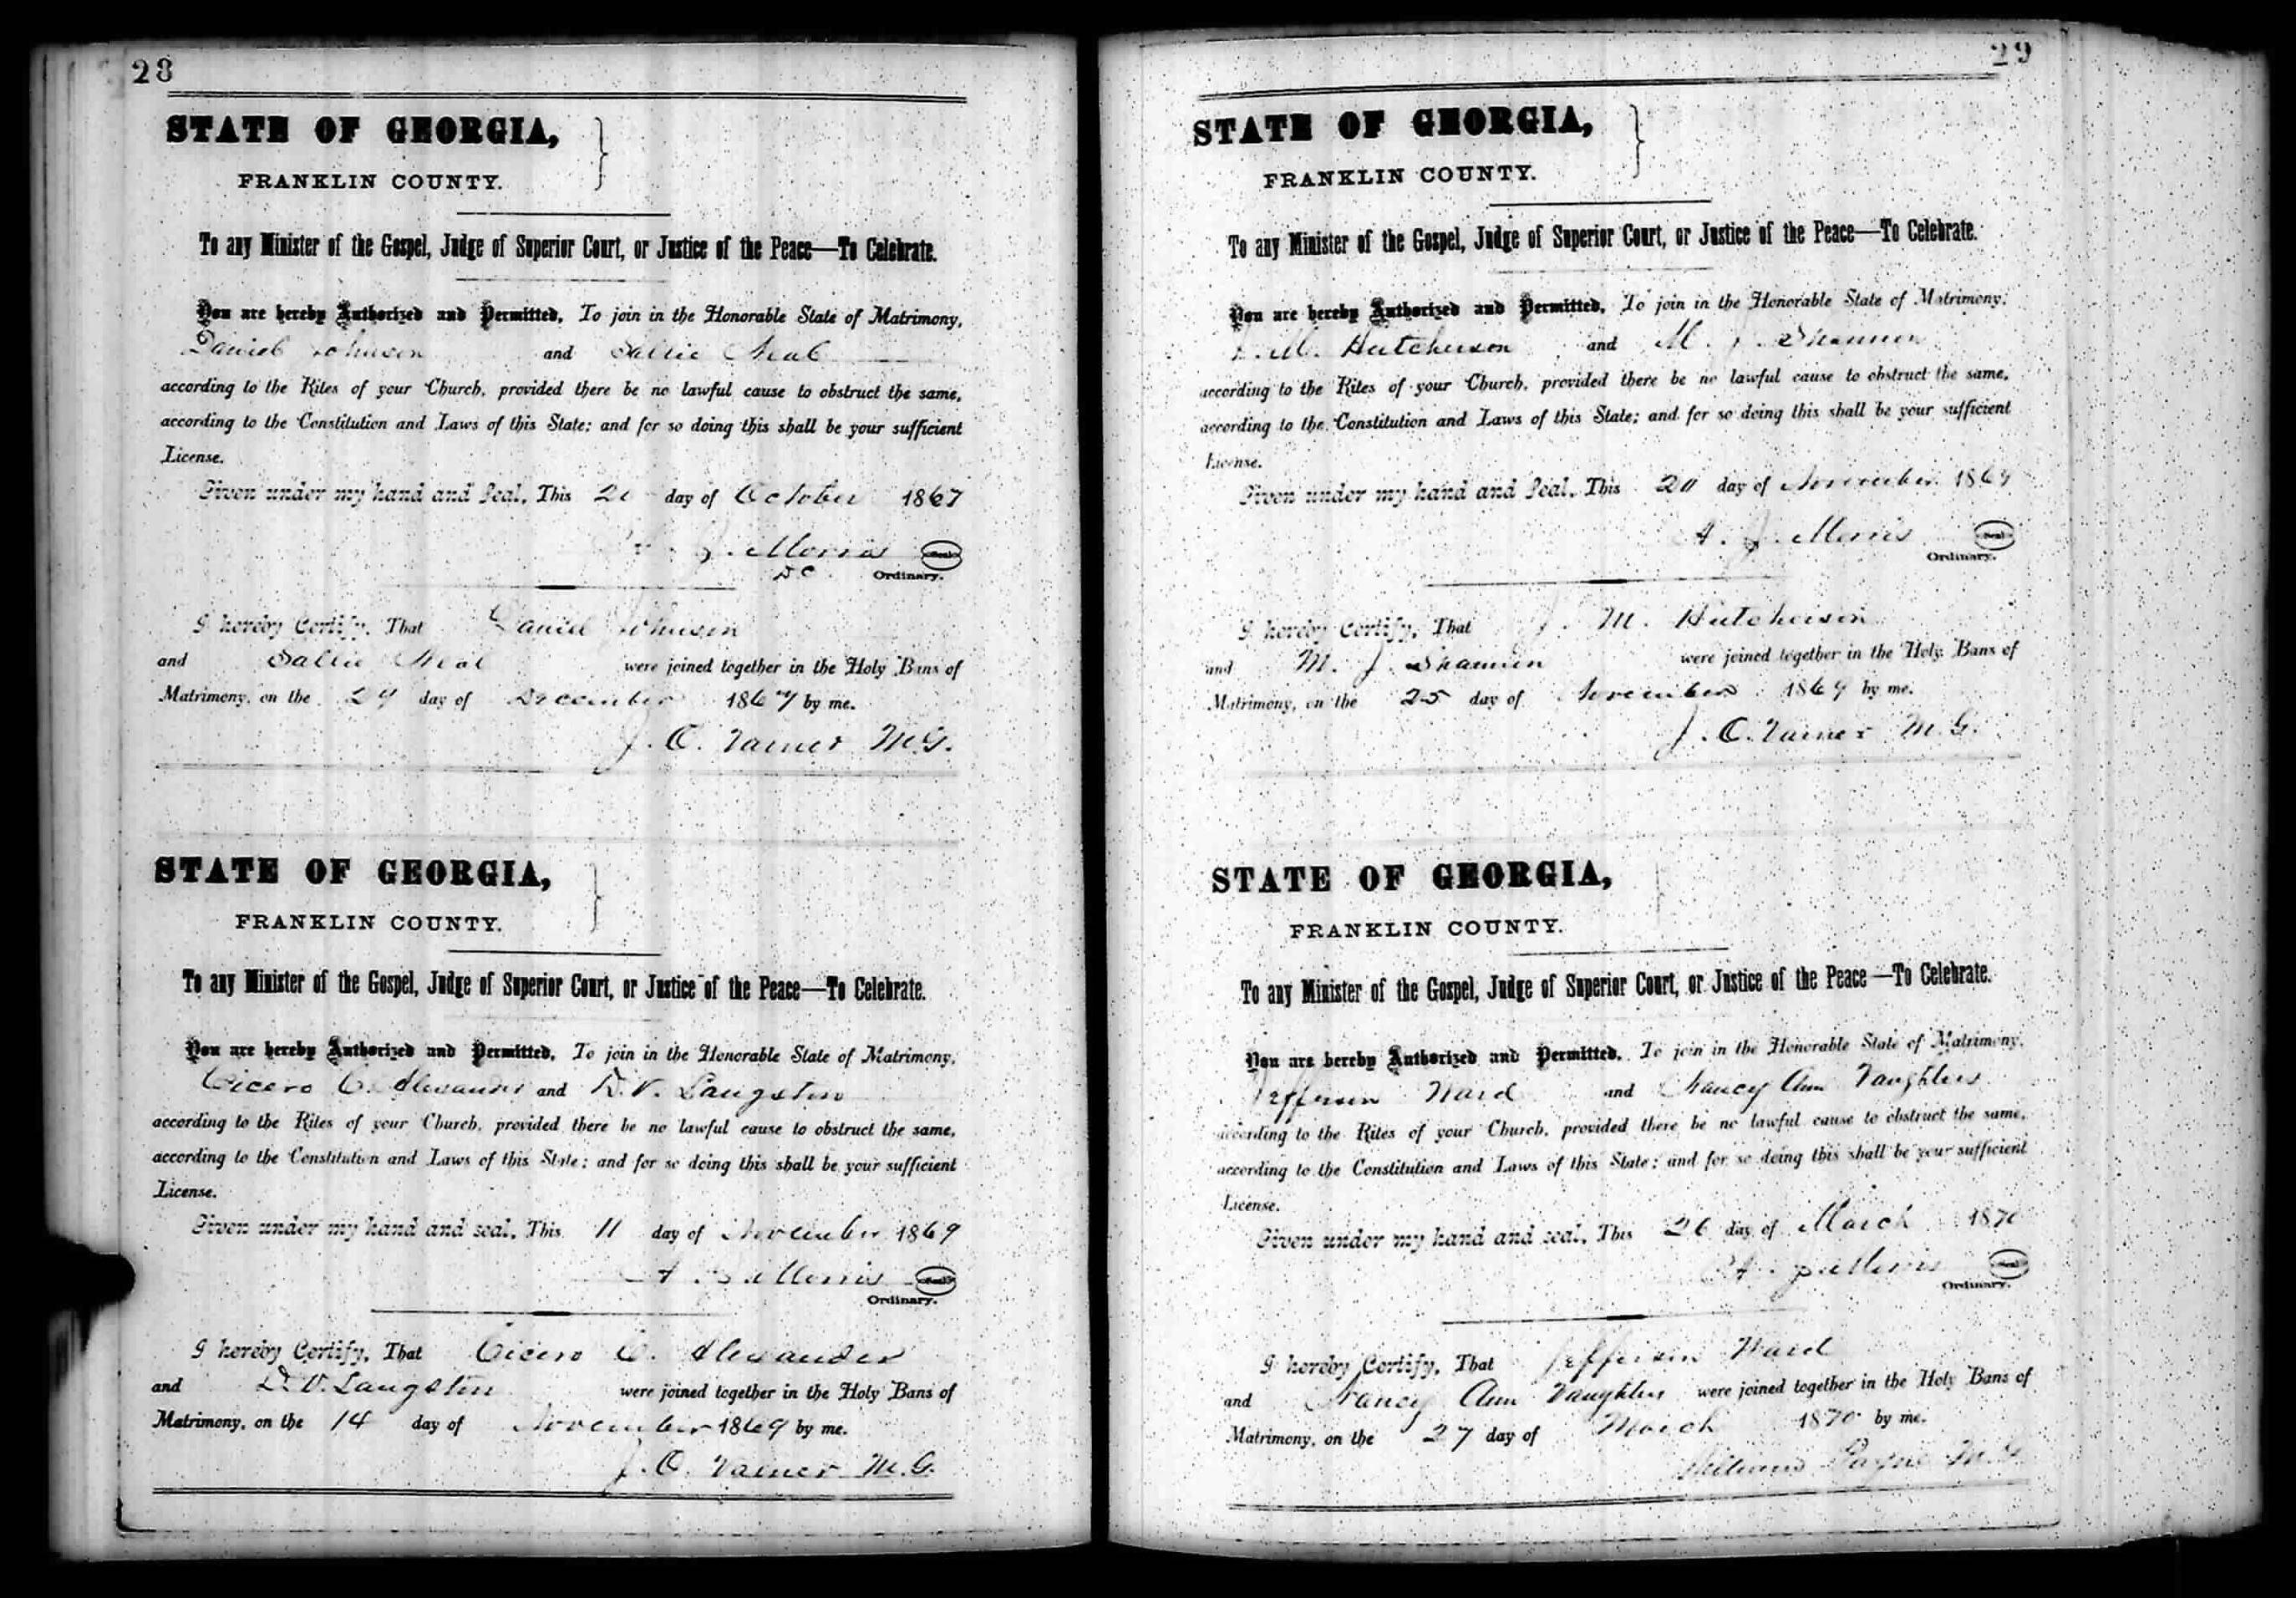 28
STATE OF GEORGIA,
FRANKLIN COUNTY.
To any Minister of the Gospel, Judge of Superior Court, or Justice of the Peace—To Celebrate.
You are hereby Authorized and Permitted, To join in the Honorable State of Matrimony,
Daniel Johnson and Sallie Neal
according to the Rites of your Church, provided there be no lawful cause to obstruct the same,
according to the Constitution and Laws of this State; and for so doing this shall be your sufficient
License.
Given under my hand and Seal, This day of October 1867
J. Morris Seal
D C Ordinary.
I hereby Certify, That Daniel Johnson
and Sallie Neal were joined together in the Holy Bans of
Matrimony, on the 29 day of December 1867 by me.
J. O. Varner M.G.
STATE OF GEORGIA,
FRANKLIN COUNTY.
To any Minister of the Gospel, Judge of Superior Court, or Justice of the Peace—To Celebrate.
You are hereby Authorized and Permitted, To join in the Honorable State of Matrimony,
Cicero C. Alexander and D. V. Langston
according to the Rites of your Church, provided there be no lawful cause to obstruct the same,
according to the Constitution and Laws of this State; and for so doing this shall be your sufficient
License.
Given under my hand and seal, This 11 day of November 1869
A. J. Morris Seal
Ordinary.
I hereby Certify, That Cicero C. Alexander
and D. V. Langston were joined together in the Holy Bans of
Matrimony, on the 14 day of November 1869 by me.
J. O. Varner M.G.
29
STATE OF GEORGIA,
FRANKLIN COUNTY.
To any Minister of the Gospel, Judge of Superior Court, or Justice of the Peace—To Celebrate.
You are hereby Authorized and Permitted, To join in the Honorable State of Matrimony,
J. M. Hutcherson and M. J. Shannon
according to the Rites of your Church, provided there be no lawful cause to obstruct the same,
according to the Constitution and Laws of this State; and for so doing this shall be your sufficient
License.
Given under my hand and Seal, This 20 day of November 1869
A. J. Morris Seal
Ordinary.
I hereby Certify, That J. M. Hutcherson
and M. J. Shannon were joined together in the Holy Bans of
Matrimony, on the 25 day of November 1869 by me.
J. O. Varner M.G.
STATE OF GEORGIA,
FRANKLIN COUNTY.
To any Minister of the Gospel, Judge of Superior Court, or Justice of the Peace—To Celebrate.
You are hereby Authorized and Permitted, To join in the Honorable State of Matrimony,
Jefferson Ward and Nancy Ann Vaughters
according to the Rites of your Church, provided there be no lawful cause to obstruct the same,
according to the Constitution and Laws of this State; and for so doing this shall be your sufficient
License.
Given under my hand and seal, This 26 day of March 1870
A. J. Morris Seal
Ordinary.
I hereby Certify, That Jefferson Ward
and Nancy Ann Vaughters were joined together in the Holy Bans of
Matrimony, on the 27 day of March 1870 by me.
Payne M.G.